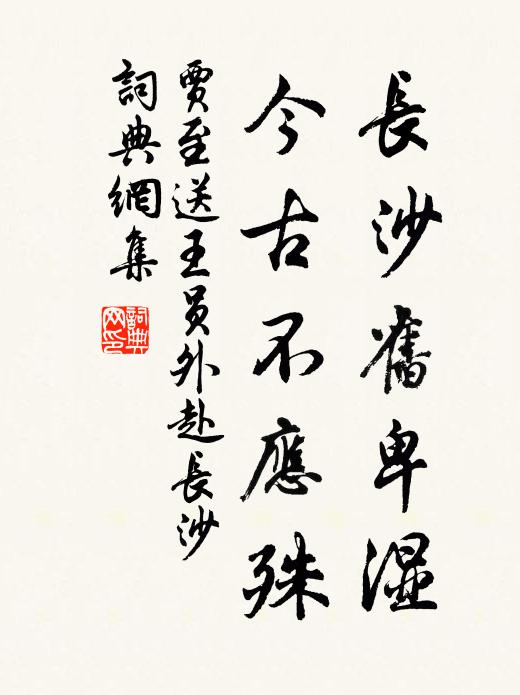 長沙舊卑濕
今古不應殊
賈至送王員外赴長沙
詞典網集
詞典
网印